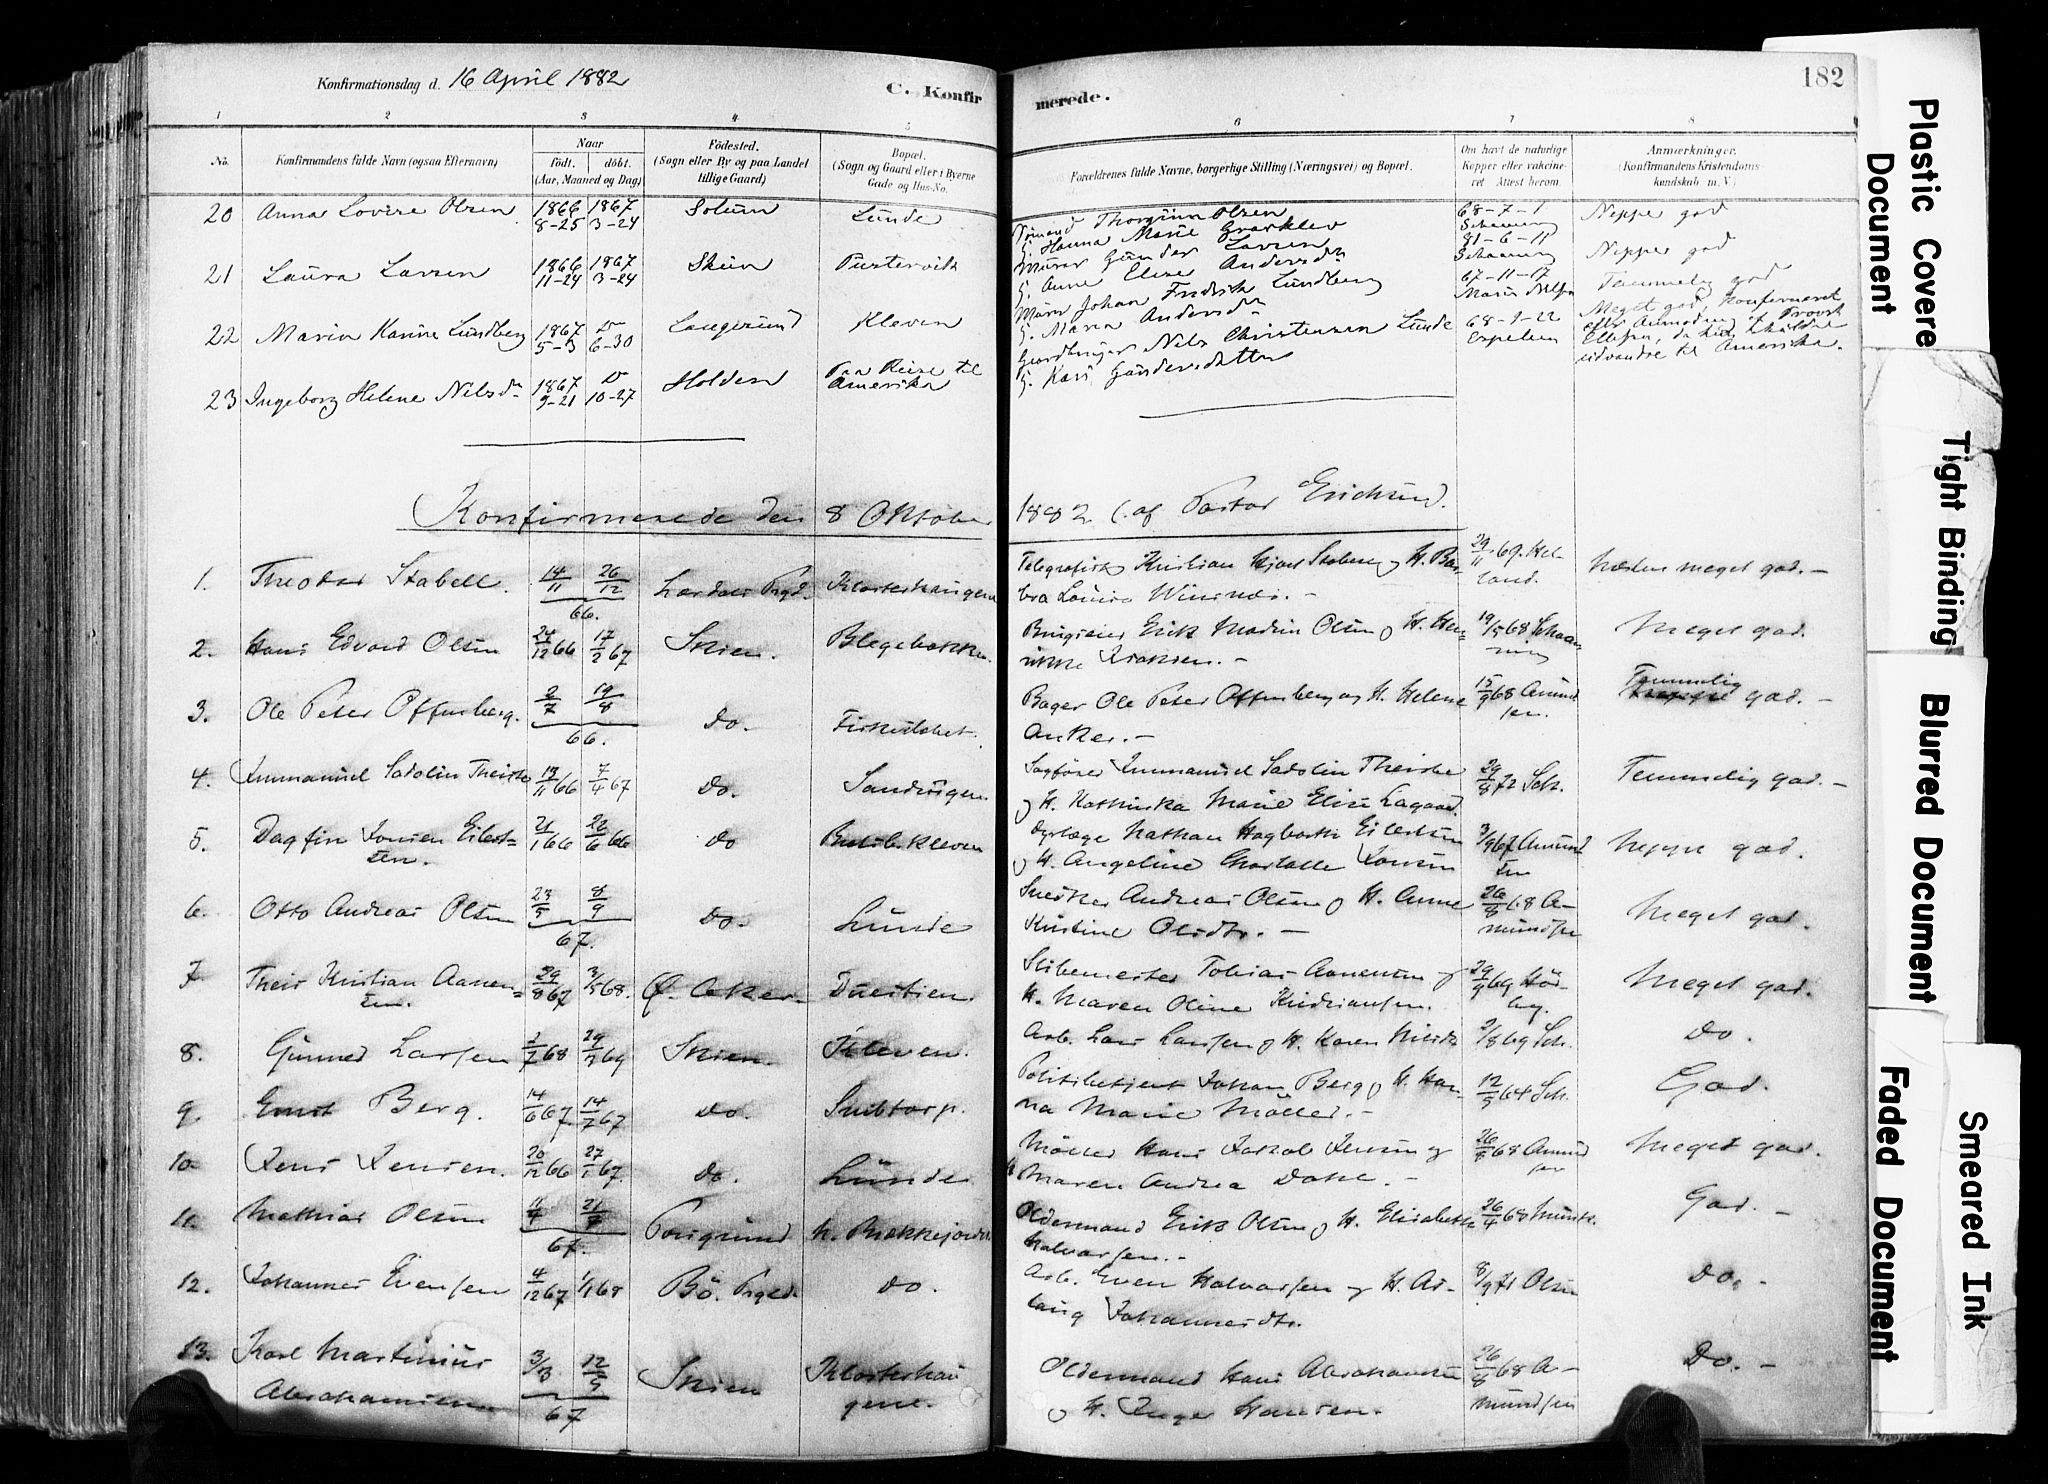 Konfirmationsdag d. 16 April 1882
C. Konfirmerede.
182
1 2 3 4 5 6 7 8
No.
Konfirmandens fulde Navn (ogsaa Efternavn)
Naar
født. døbt.
(Aar, Maaned og Dag)
Födested.
(Sogn eller By og paa Landet tillige Gaard)
Bopæl.
(Sogn og Gaard eller i Byerne Gade og Hus-No.
Forældrenes fulde Navne, borgerlige Stilling (Næringsvei) og Bopæl.
Om havt de naturlige Kopper eller vakcineret Attest herom.
Anmærkninger.
(Konfirmandens Kristendomskundskab m. V.)
20 Anna Lovise Olsen 1866 8-25 1867 3-24 Solum Lunde
Thorgrim Olsen
g. Hanna Marie Graaklev
68-7-1 Schaaning
Neppe god
21 Laura Larsen 1866 11-24 1867 3-24 Skien Pustervik
Murer Gunder Larsen
g. Anne Elise Andersdr
81-6-11 Schaaning
Neppe god
22 Maria Karine Lundberg 1867 5-3 Do 6-30 Langesund Kleven
Murer Johan Fredrik Lundberg
g. Maria Andersdr
67-11-17
Temmelig god
23 Ingeborg Helene Nilsdr 1867 9-21 Do 10-27 Holden Paa Reise til Amerika
Gaardbruger Nils Christensen Lunde
g. Kari Gundersdatter
68-9-22 Espelien
Meget god, konfirmeret
efter Anmodning af Provst
Ellefsen, da hun skulde
udvandre til Amerika.
Konfirmerede den 8 Oktober 1882 (af Pastor Erichsen).
1. Theodor Stabell. 14/11 26/12 66. Lardals Prgd. Klosterhaugene
Telegrafist Kristian Hjort Stabell og H. Barbra Louise Winsnes. –
29/11 69. Helland.
Næsten meget god. –
2. Hans Edvard Olsen 24/12 66 17/2 67 Skien. Blegebakken.
Erik Martin Olsen og H. Hennikke Isaksen. –
19/5 68 Schaanning
Meget god.
3. Ole Peter Offenberg. 2/7 19/8 66. Do.
Bager Ole Peter Offenberg og H. Helene Anker. –
15/9 68 Amundsen.
Temmelig god. –
4. Immanuel Sadolin Theiste 19/11 66 7/4 67 Do. Sandungen.
Sagfører Immanuel Sadolin Theiste
og H. Kathinka Marie Elise Lagaard.
29/8 72 Sch.
Temmelig god. –
5. Dagfin Jonsen Eilertsen. 21/1 66 22/6 66 Do Kleven
Dyrlæge Nathan Hagbarth Eilertsen
og H. Angeline Charlotte Jonsen
3/9 67 Amundsen
Neppe god.
6. Otto Andreas Olsen 23/5 8/9 67. Do. Lunde
Snedker Andreas Olsen og H. Anne
Kristine Olsdtr. –
26/8 68 Amundsen
Meget god.
7. Theis Kristian Aanensen. 29/8 67 3/5 68. Ø. Aker. Duestien.
Slibemester Tobias Aanensen og
H. Maren Oline Kristiansen.
29/9 69
Meget god.
8. Gunned Larsen 2/7 68 29/3 69 Skien. Kleven.
Arb. Lars Larsen og H. Karen Nilsdtr
2/8 69 Sch.
Do.
9. Ernst Berg. 14/6 67. 14/7 67 Do. Snibtorp.
Politibetjent Johan Berg og H. Hanna Marie Møller. –
12/5 64 Sch.
God.
10. Jens Jensen. 20/12 66 27/1 67. Do. Lunde
Møller Hans Jakob Jensen og
H. Maren Andrea Dahl. –
26/8 68 Amundsen
Meget god.
11. Mathias Olsen 4/4 21/7 67. Porsgrund N. Brekkejordet
Oldermand Erik Olsen og H. Elisabeth
Halvorsen. –
26/4 68 Munk.
God. –
12. Johannes Evensen 4/12 67 1/1 68 Bø. Prgld. Do.
Arb. Even Halvorsen og H. Aslaug Johannesdtr.
8/9 71 Olsen
Do. –
13. Karl Martinius Abrahamsen 3/3 12/5 67 Skien Klosterhaugene.
Oldermand Hans Abrahamsen
og H. Inger Hansen.
26/8 68 Amundsen
Do. –
Plastic Covered Document
Tight Binding
Blurred Document
Faded Document
Smeared Ink